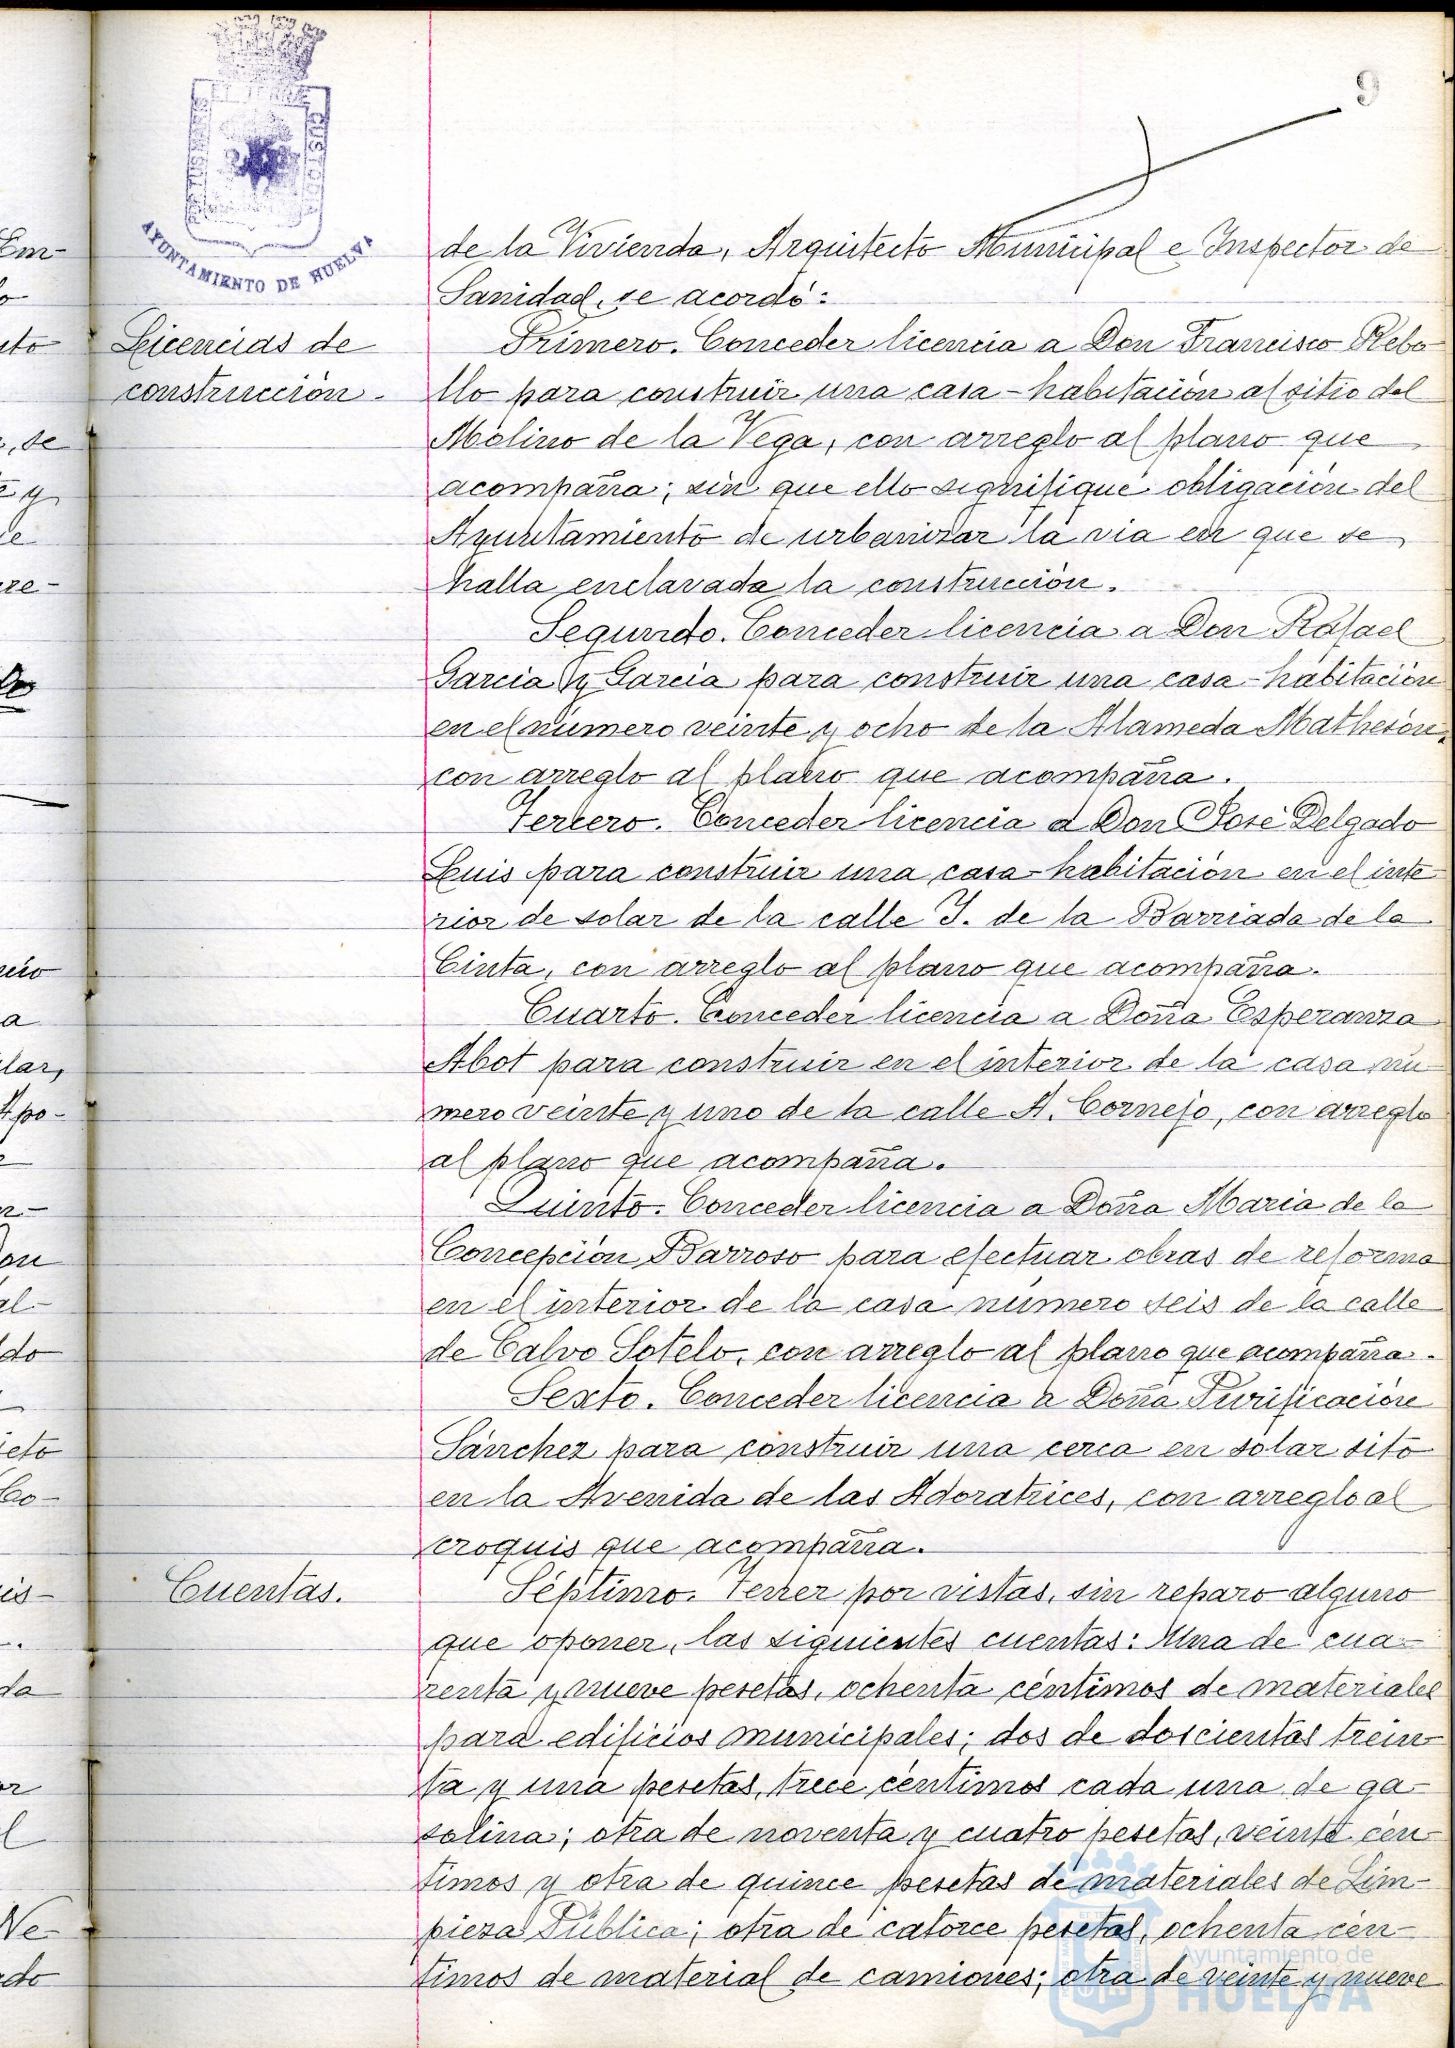 9
PORTUS MARIS ET TERRAE CUSTODIA
AYUNTAMIENTO DE HUELVA
de la Vivienda, Arquitecto Municipal e Inspector de
Sanidad, se acordó:
Licencias de
construcción.
Primero. Conceder licencia a Don Francisco Rebo-
llo para construir una casa-habitación al sitio del
Molino de la Vega, con arreglo al plano que
acompaña; sin que ello signifique obligación del
Ayuntamiento de urbanizar la via en que se
halla enclavada la construcción.
Segundo. Conceder licencia a Don Rafael
Garcia y Garcia para construir una casa-habitación
en el número veinte y ocho de la Alameda Mathesón,
con arreglo al plano que acompaña.
Tercero. Conceder licencia a Don José Delgado
Luis para construir una casa-habitación en el inte
rior de solar de la calle J. de la Barriada de la
Cinta, con arreglo al plano que acompaña.
Cuarto. Conceder licencia a Doña Esperanza
Abot para construir en el interior de la casa nú-
mero veinte y uno de la calle A. Cornejo, con arreglo
al plano que acompaña.
Quinto. Conceder licencia a Doña Maria de la
Concepción Barroso para efectuar obras de reforma
en el interior de la casa número seis de la calle
de Calvo Sotelo, con arreglo al plano que acompaña.
Sexto. Conceder licencia a Doña Purificación
Sánchez para construir una cerca en solar sito
en la Avenida de las Adoratrices, con arreglo al
croquis que acompaña.
Cuentas.
Séptimo. Tener por vistas, sin reparo alguno
que oponer, las siguientes cuentas: Una de cua-
renta y nueve pesetas, ochenta céntimos de materiales
para edificios municipales; dos de doscientas trein-
ta y una pesetas, trece céntimos cada una de ga-
solina; otra de noventa y cuatro pesetas, veinte cén-
timos y otra de quince pesetas de materiales de Lim-
pieza Pública; otra de catorce pesetas, ochenta cén-
timos de material de camiones; otra de veinte y nueve
Ayuntamiento de
HUELVA